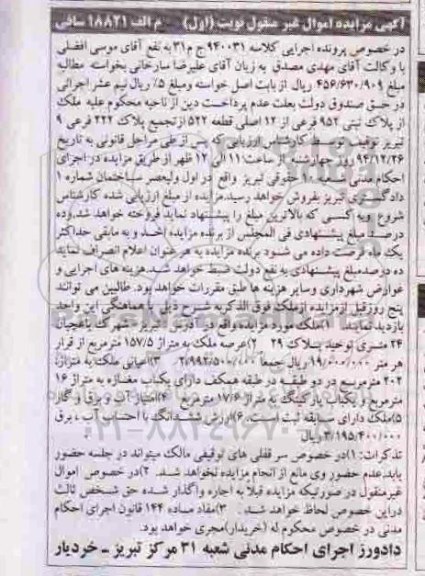 آگهی مزایده اموال غیر منقول نوبت (اول) م الف ۱۸۸۲۱ سافی
در خصوص پرونده اجرایی کلاسه ۹۴۰۰۳۱ ج م ۳۱ به نفع آقای موسی افضلی
با وکالت آقای مهدی مصدق به زیان آقای علیرضا سارخانی بخواسته مطالبه
مبلغ ۴۵۶/۶۳۰/۹۰۹ ریال از بابت اصل خواسته و مبلغ ۵٪ ریال نیم عشر اجرائی
در حق صندوق دولت بعلت عدم پرداخت دین از ناحیه محکوم علیه ملک
از پلاک ثبتی ۹۵۲ فرعی از ۱۲ اصلی قطعه ۵۲۲ از تجمیع پلاک ۲۲۲ فرعی ۹
تبریز توقیف توسط کارشناس ارزیابی که پس از طی مراحل قانونی به تاریخ
۹۴/۱۲/۲۶ روز چهارشنبه از ساعت ۱۱ الی ۱۲ ظهر از طریق مزایده در اجرای
احکام مدنی حقوقی تبریز واقع در اول ولیعصر ساختمان شماره ۱
دادگستری تبریز بفروش خواهد رسید. مزایده از مبلغ ارزیابی شده کارشناس
شروع و به کسی که بالاترین مبلغ را پیشنهاد نماید فروخته خواهد شد. ده
درصد مبلغ پیشنهادی فی المجلس از برنده مزایده اخذ و به مابقی حداکثر
یک ماه فرصت داده می شود برنده مزایده به هر عنوان اعلام انصراف نماید
ده درصد مبلغ پیشنهادی به نفع دولت ضبط خواهد شد. هزینه های اجرایی و
عوارض شهرداری و سایر هزینه ها طبق مقررات خواهد بود. طالبین می توانند
پنج روز قبل از مزایده از ملک فوق الذکر به شرح ذیل با هماهنگی این واحد
بازدید نمایند. ۱)ملک مورد مزایده واقع در آدرس تبریز - شهرک باغمیشه
۲۴ متری توحید پلاک ۲۹ ۲)عرصه ملک به متراژ ۱۵۷/۵ مترمربع از قرار
هر متر ۱۹/۰۰۰/۰۰۰ ریال جمعا ۲/۹۹۲/۵۰۰/۰۰۰ ۳)اعیانی ملک به متراژ
۲۰۲ مترمربع در دو طبقه در طبقه همکف دارای یکباب مغازه به متراژ ۱۶
مترمربع و یکباب پارکینگ به متراژ ۱۷/۶ مترمربع ۴)امتیاز آب و برق و گاز
۵)ملک دارای سابقه ثبت است. ۶)ارزش ششدانگ با احتساب آب ، برق
۳/۱۹۵/۴۰۰/۰۰۰ ریال
تذکرات: ۱)در خصوص سر قفلی های توقیفی مالک میتواند در جلسه حضور
یابد عدم حضور وی مانع از انجام مزایده نخواهد شد. ۲)در خصوص اموال
غیر منقول در صورتیکه مزایده قبلاً به اجاره واگذار شده حق شخص ثالث
در این خصوص لحاظ خواهد شد. ۳)مفاد ماده ۱۴۴ قانون اجرای احکام
مدنی در خصوص محکوم له (خریدار) مجری خواهد بود.
دادورز اجرای احکام مدنی شعبه ۳۱ مرکز تبریز ـ خردیار
ParsNamadData
۰۲۱-۸۸۳۴۹۶۷۰